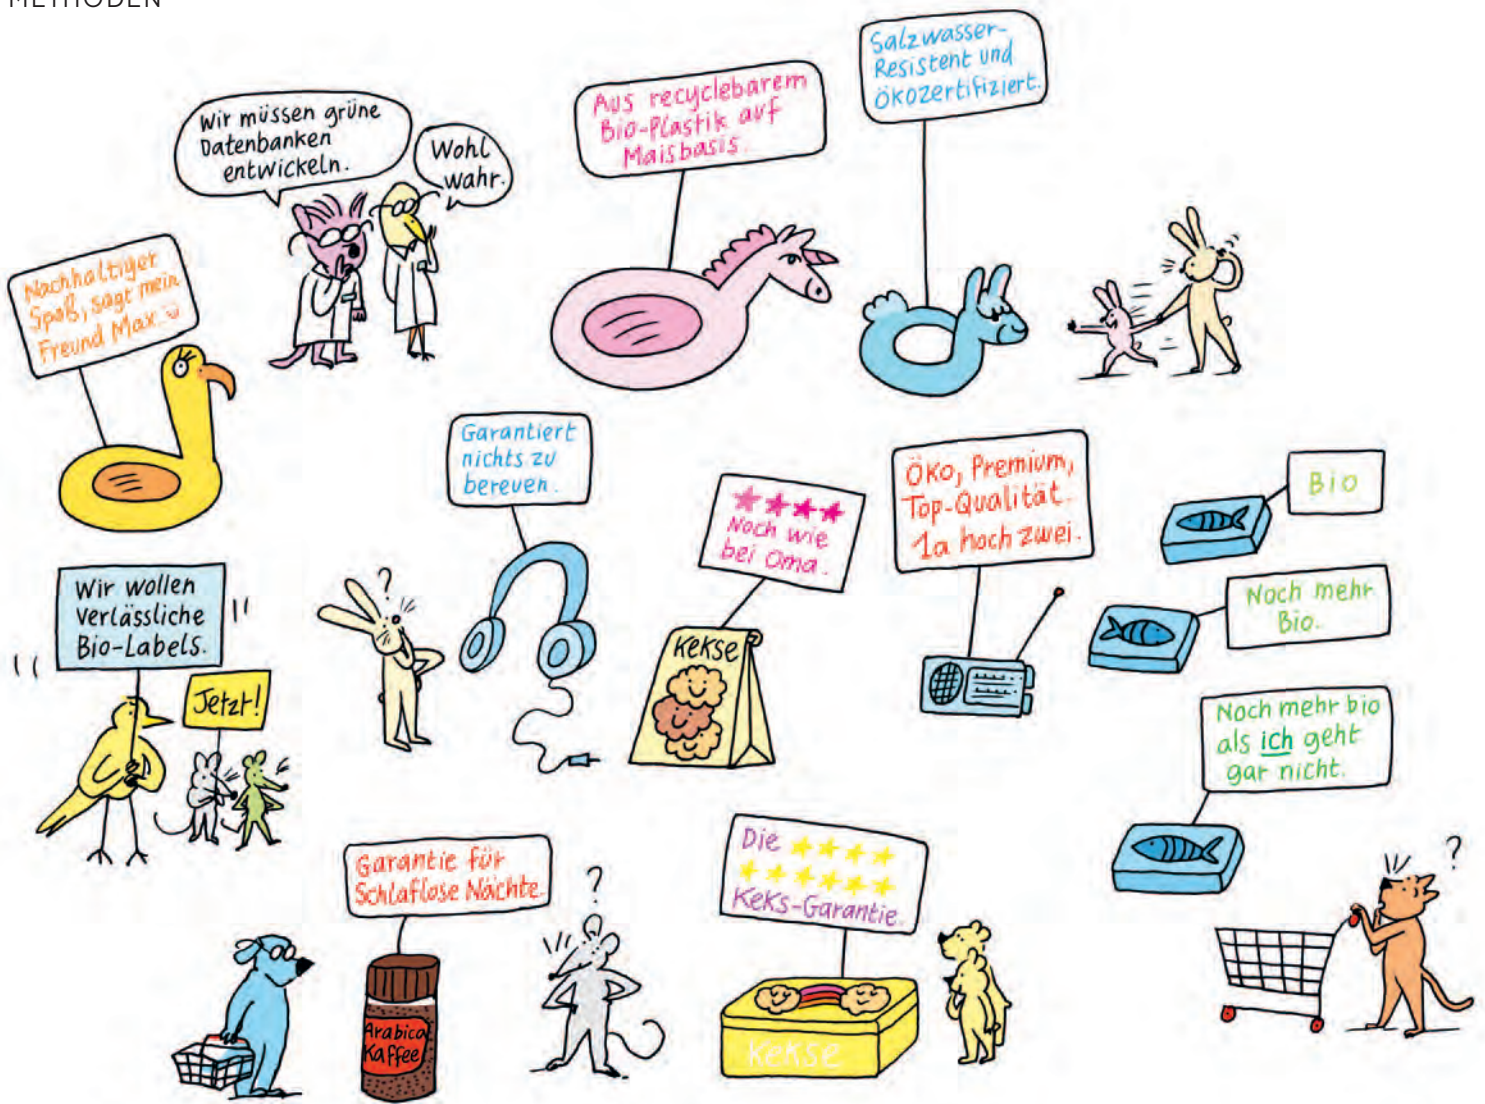 METHODEN
Wir müssen grüne
Datenbanken
entwickeln.
Wohl
wahr.
Aus recyclebarem
Bio-Plastik auf
Maisbasis.
Salzwasser-
Resistent und
Ökozertifiziert.
Nachhaltiger
Spaß, sagt mein
Freund Max.
Garantiert
nichts zu
bereuen.
Noch wie
bei Oma.
Kekse
Öko, Premium,
Top-Qualität.
1a hoch zwei.
Bio
Noch mehr
Bio.
Noch mehr bio
als ich geht
gar nicht.
Wir wollen
verlässliche
Bio-Labels.
Jetzt!
Garantie für
Schlaflose Nächte.
Arabica
Kaffee
Die
Keks-Garantie.
Kekse
?
?
?